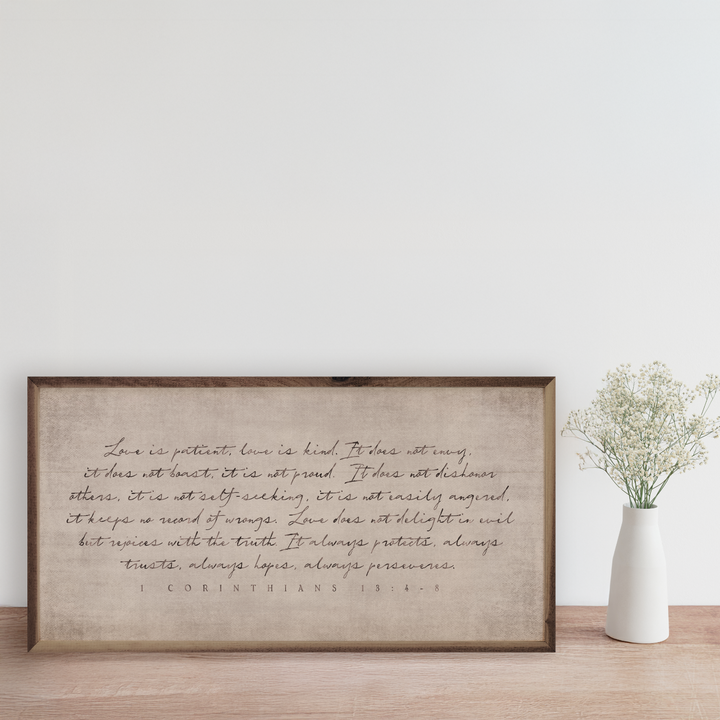 Love is patient, love is kind. It does not envy,
it does not boast, it is not proud. It does not dishonor
others, it is not self-seeking, it is not easily angered,
it keeps no record of wrongs. Love does not delight in evil
but rejoices with the truth. It always protects, always
trusts, always hopes, always perseveres.
1 CORINTHIANS 13:4-8